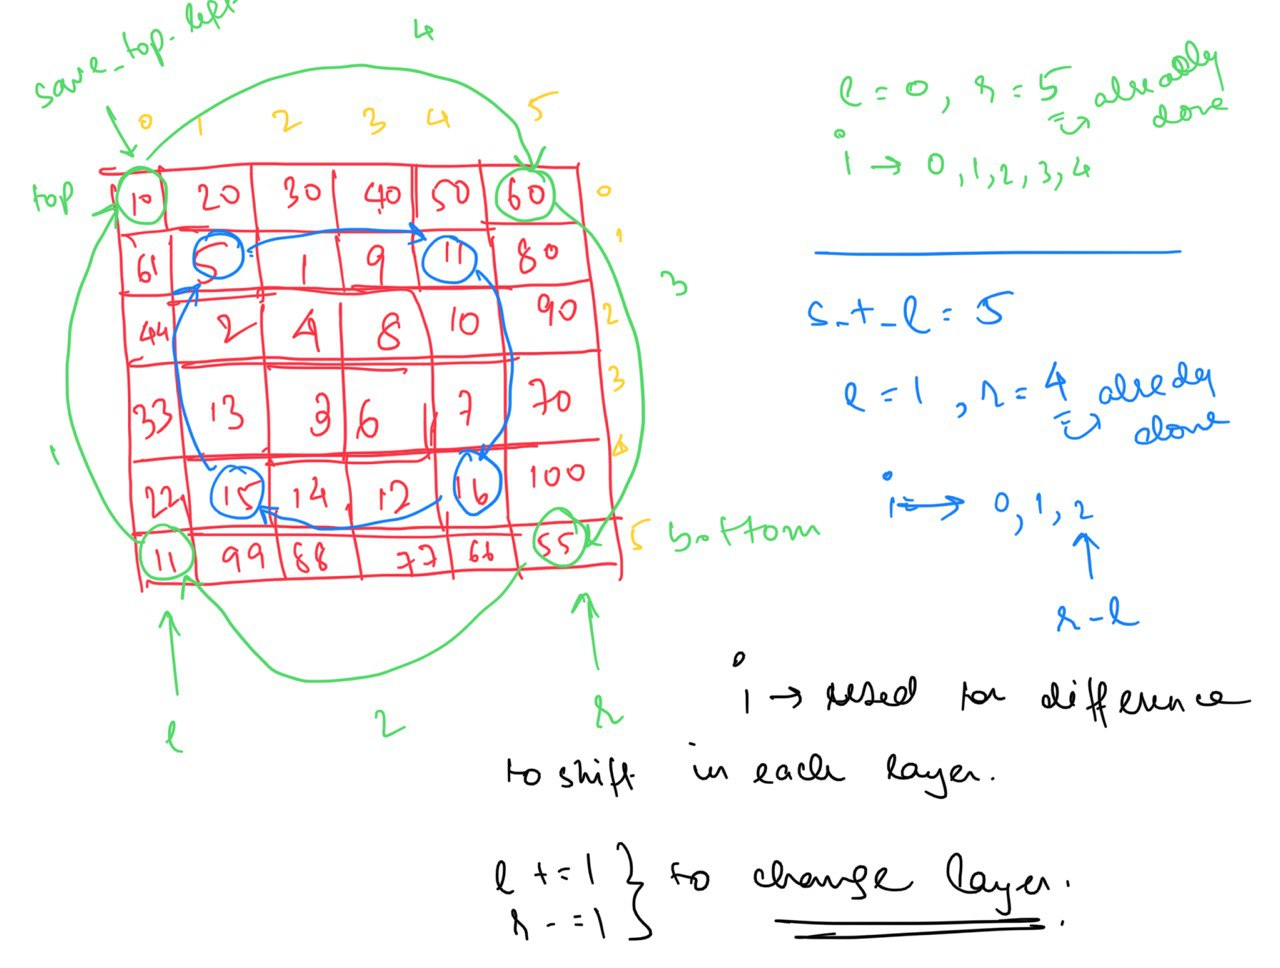 save_top-left
4
0 1 2 3 4 5
top
10 20 30 40 50 60 0
61 5 1 9 11 80 1
44 2 4 8 10 90 2
33 13 3 6 7 70 3
22 15 14 12 16 100 4
11 99 88 77 66 55 5 bottom
1
3
2
l
r
l = 0, r = 5 already
done
i → 0,1,2,3,4
s_t_l = 5
l = 1, r = 4 already
done
i → 0,1,2
r-l
i → used for difference
to shift in each layer.
l += 1 } to change layer.
r -= 1